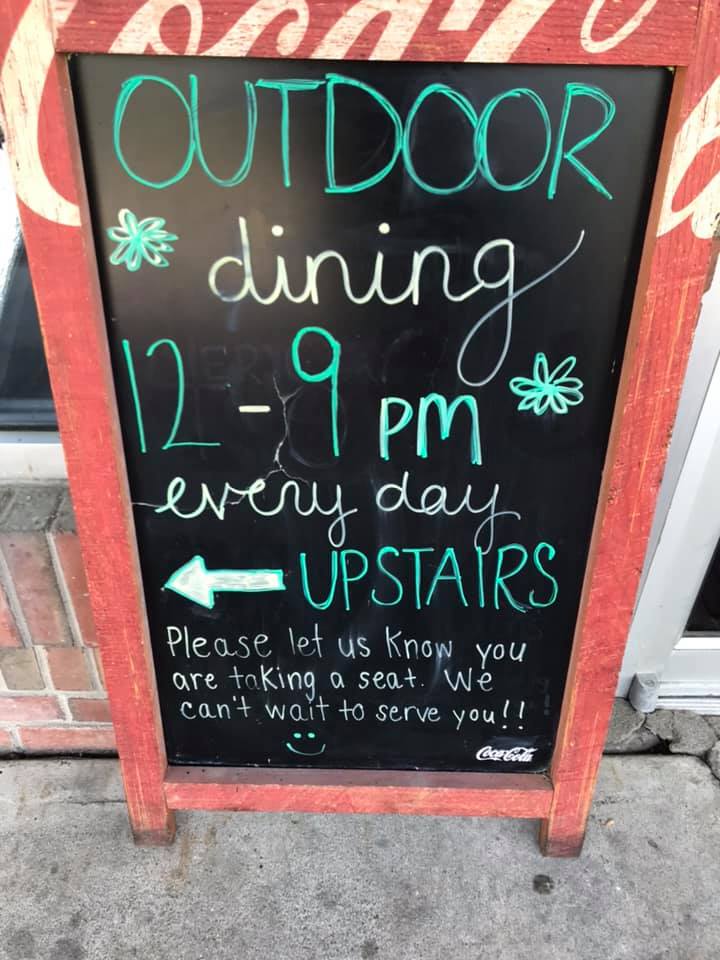 Coca
OUTDOOR
dining
12-9 PM
every day
UPSTAIRS
Please let us know you
are taking a seat. We
can't wait to serve you!!
Coca-Cola